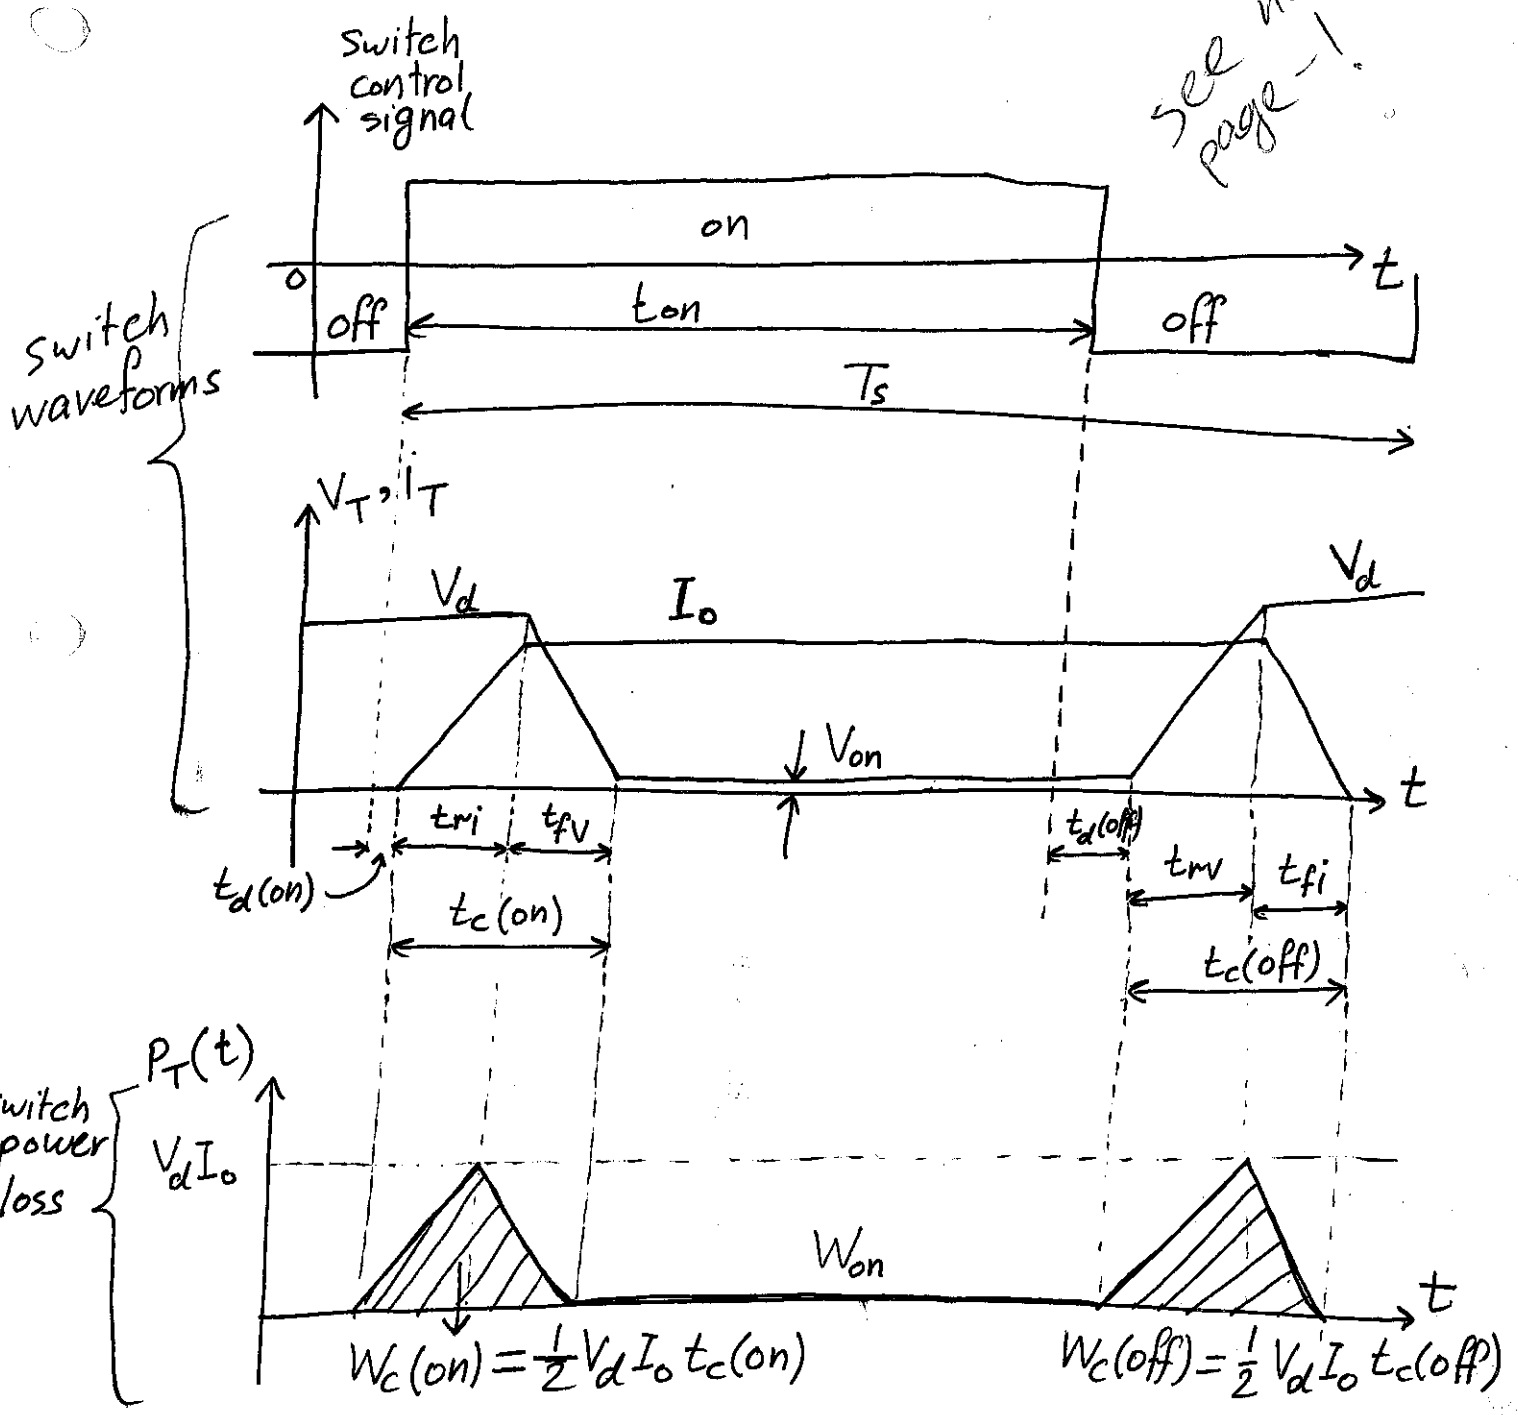 see
page-1.
Switch
control
signal
on
t
0
off
ton
off
Switch
waveforms
Ts
VT, iT
Vd
Io
Vd
Von
t
tri
tfv
td(off)
trv
tfi
td(on)
tc(on)
tc(off)
PT(t)
witch
power
loss
VdIo
Won
t
Wc(on) = 1/2 VdIo tc(on)
Wc(off) = 1/2 VdIo tc(off)